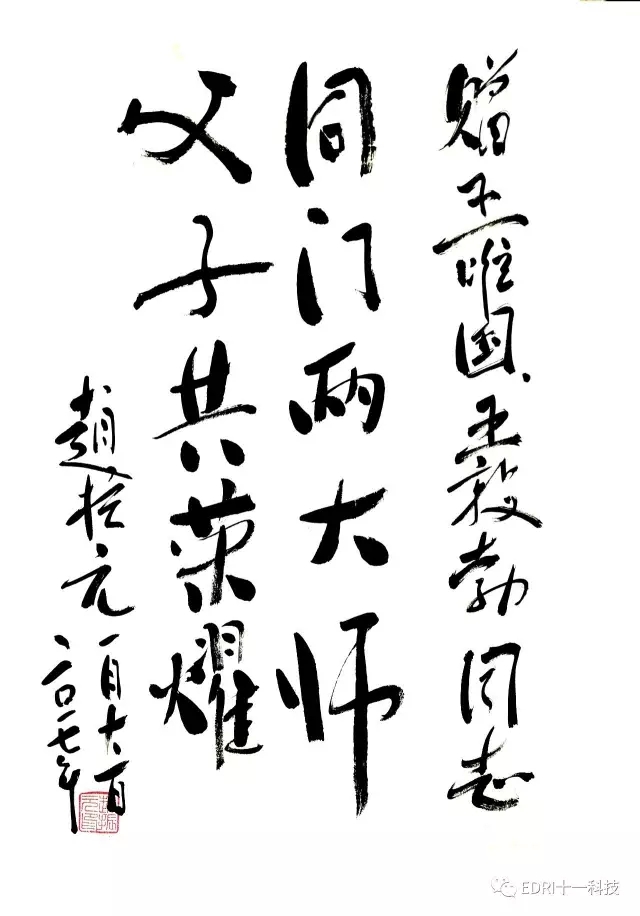 赠王唯国、王毅勃同志
同门两大师
父子共荣耀
趙振元
一月十日
二〇一七年
EDRI十一科技